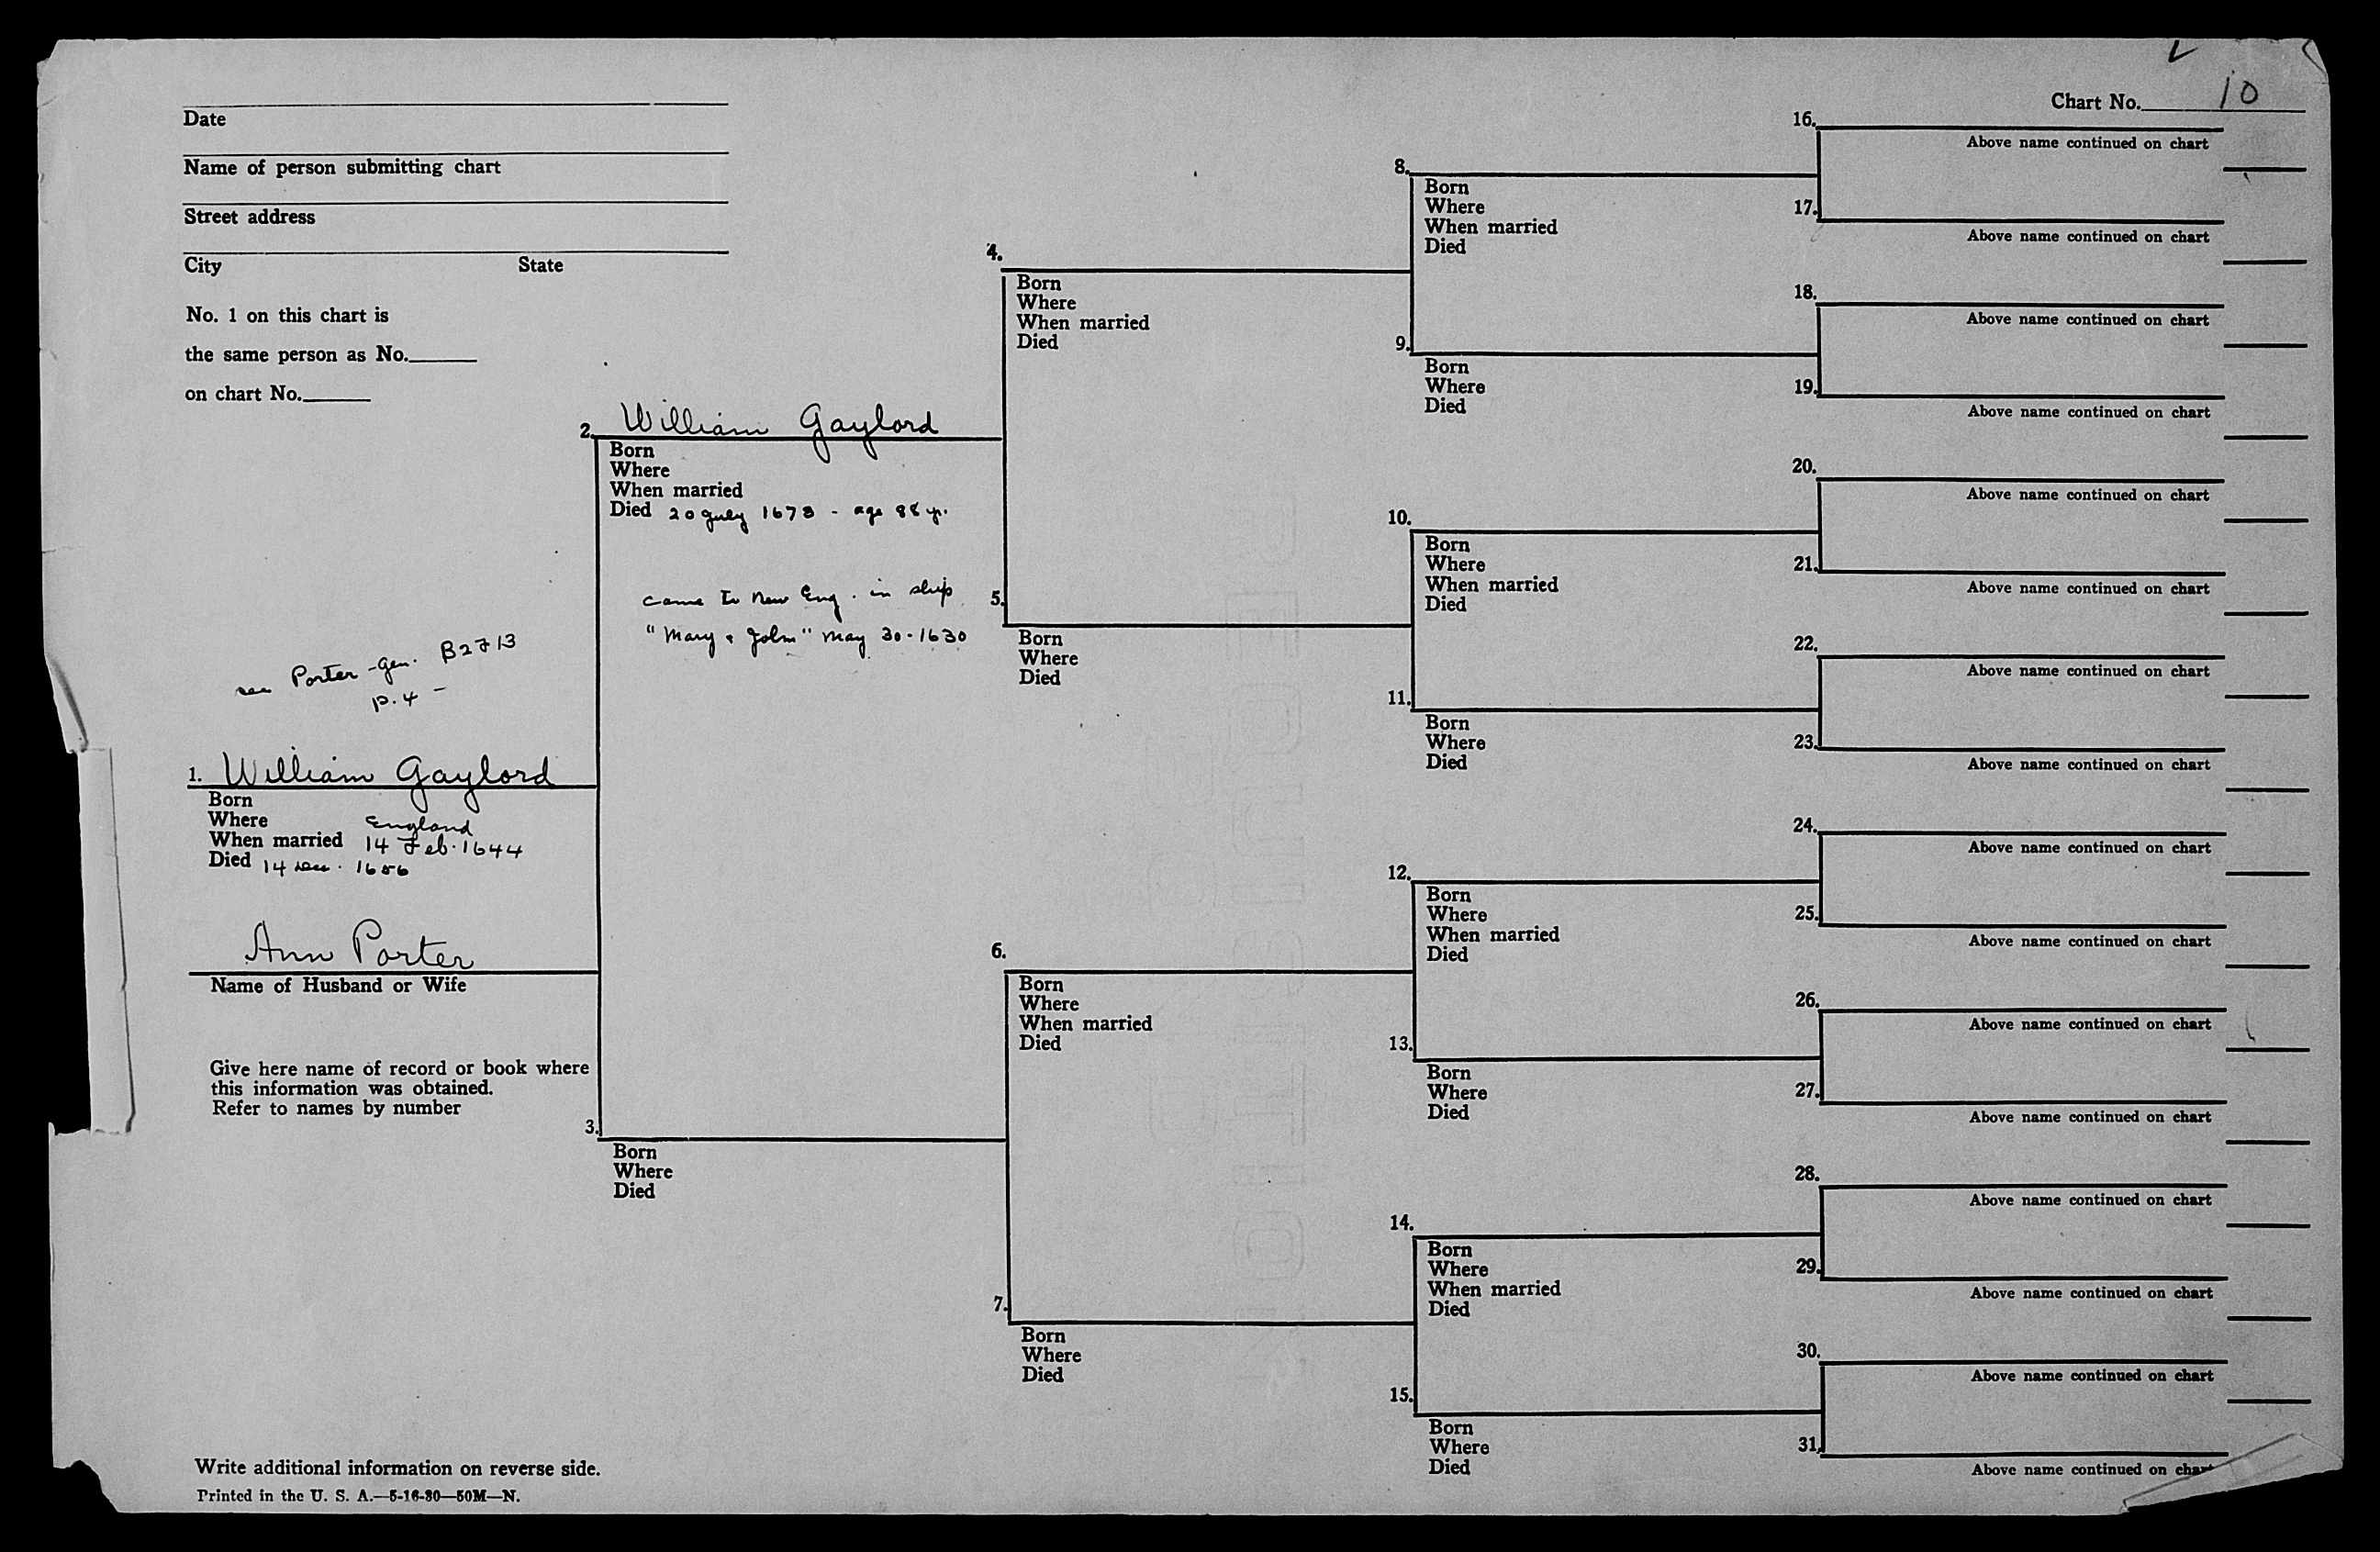 Chart No. 10
Date
Name of person submitting chart
Street address
City State
No. 1 on this chart is
the same person as No.
on chart No.
see Porter - gen. B2F13
p. 4 -
1. William Gaylord
Born
Where England
When married 14 Feb. 1644
Died 14 Dec. 1656
Ann Porter
Name of Husband or Wife
Give here name of record or book where
this information was obtained.
Refer to names by number
Write additional information on reverse side.
Printed in the U. S. A.—5-16-30—50M—N.
2. William Gaylord
Born
Where
When married
Died 20 July 1673 - age 88 yr.
came to New Eng. in ship
"Mary & John" May 30-1630
3.
Born
Where
Died
4.
Born
Where
When married
Died
5.
Born
Where
Died
6.
Born
Where
When married
Died
7.
Born
Where
Died
8.
Born
Where
When married
Died
9.
Born
Where
Died
10.
Born
Where
When married
Died
11.
Born
Where
Died
12.
Born
Where
When married
Died
13.
Born
Where
Died
14.
Born
Where
When married
Died
15.
Born
Where
Died
16.
Above name continued on chart
17.
Above name continued on chart
18.
Above name continued on chart
19.
Above name continued on chart
20.
Above name continued on chart
21.
Above name continued on chart
22.
Above name continued on chart
23.
Above name continued on chart
24.
Above name continued on chart
25.
Above name continued on chart
26.
Above name continued on chart
27.
Above name continued on chart
28.
Above name continued on chart
29.
Above name continued on chart
30.
Above name continued on chart
31.
Above name continued on chart